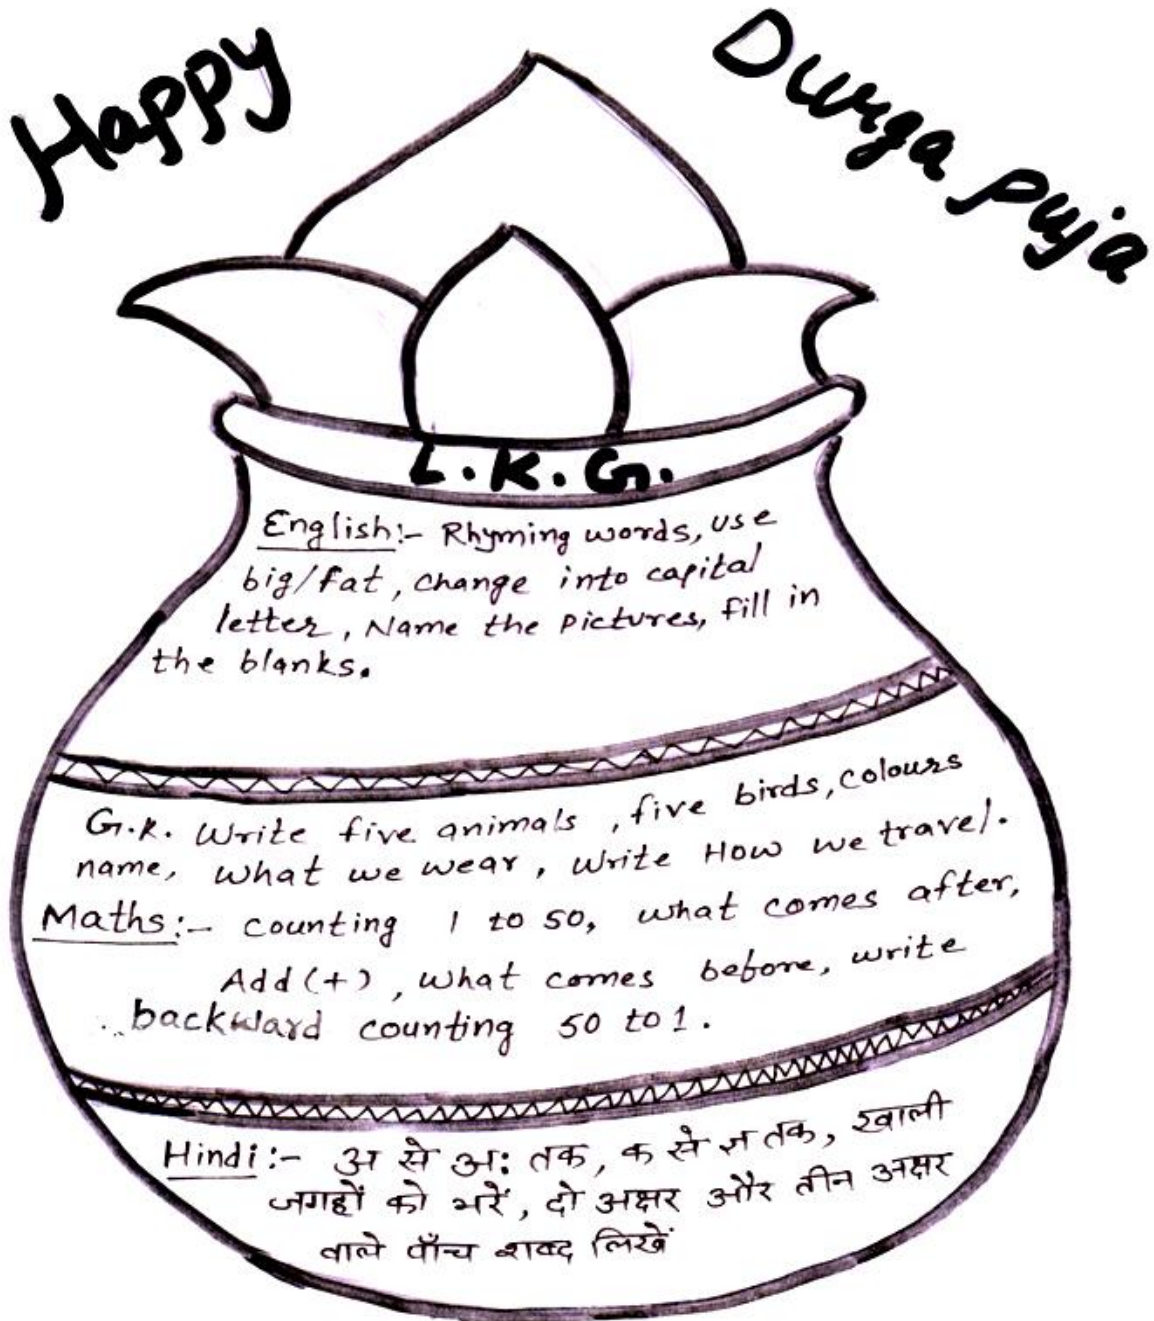 Happy
Durga Puja
L.K.G.
English:- Rhyming words, use
big/fat, change into capital
letter, Name the pictures, fill in
the blanks.
G.K. Write five animals, five birds, colours
name, what we wear, write How we travel.
Maths:- counting 1 to 50, what comes after,
Add (+), what comes before, write
backward counting 50 to 1.
Hindi:- अ से अः तक, क से ज्ञ तक, खाली
जगहों को भरें, दो अक्षर और तीन अक्षर
वाले पाँच शब्द लिखें